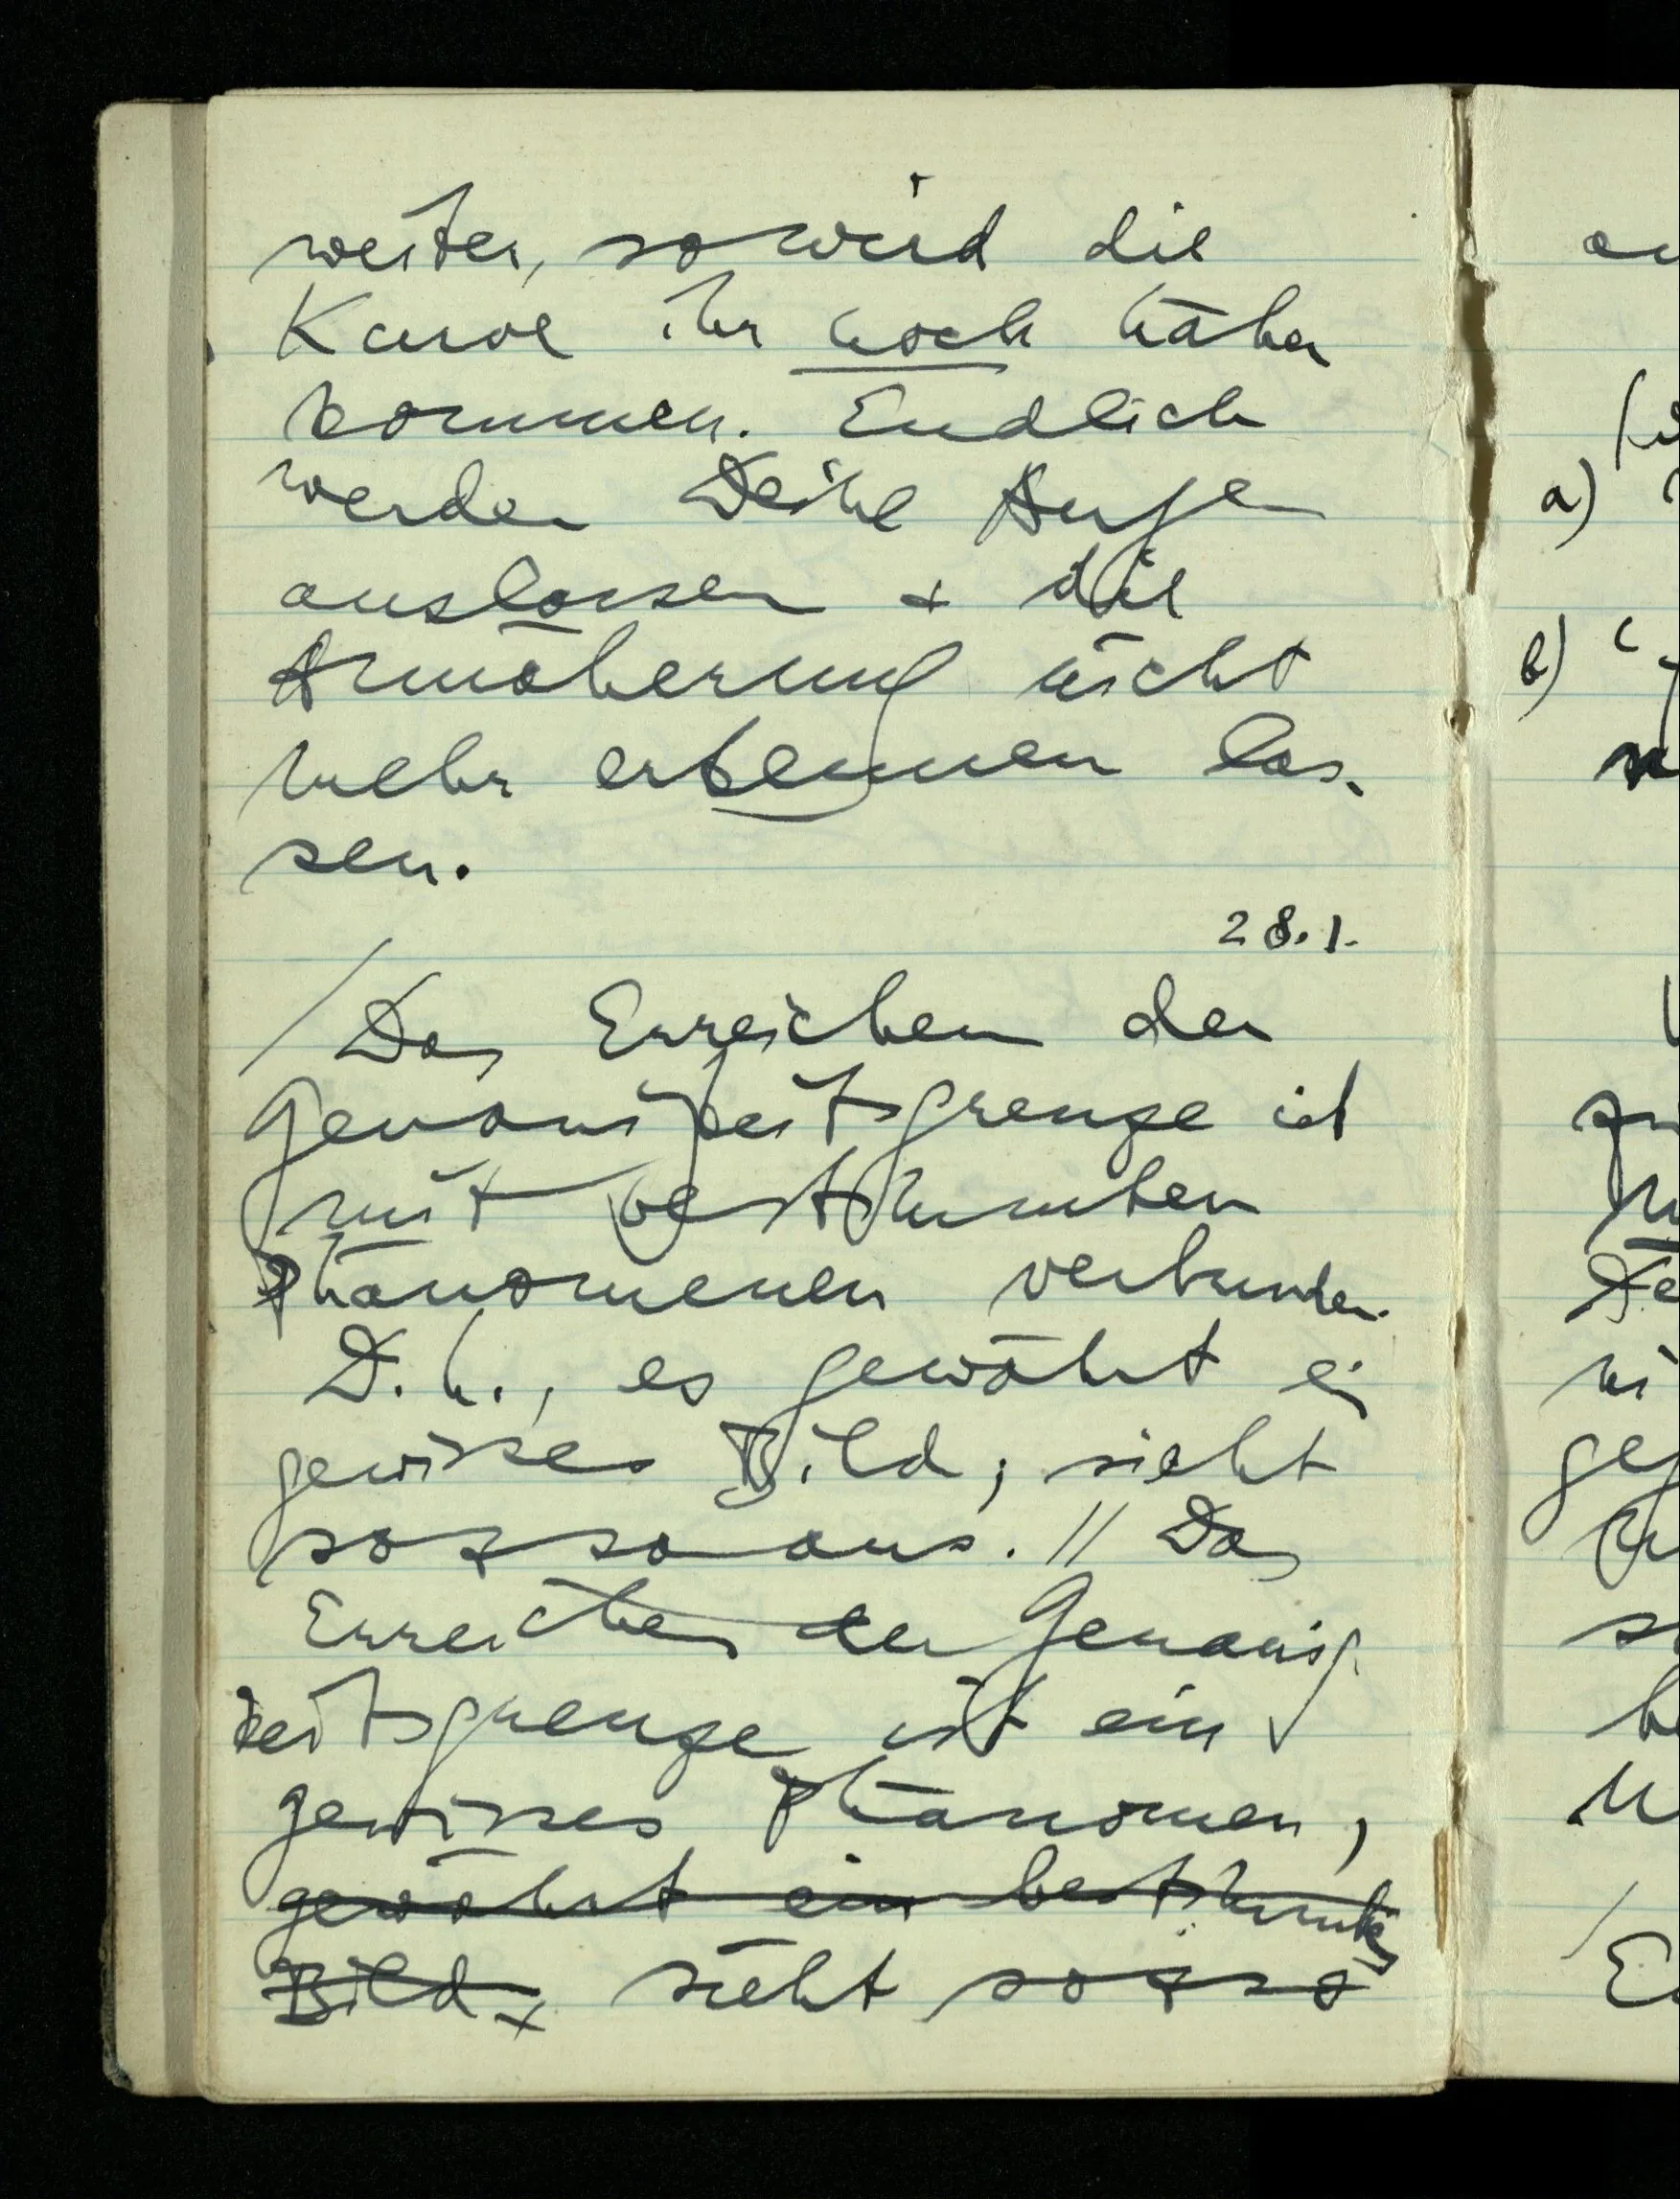 weiter, so wird die
Kurve ihr noch näher
kommen. Endlich
werden Deine Augen
auslassen + die
Annäherung nicht
mehr erkennen las-
sen.
28.1.
/ Das Erreichen der
Genauigkeitsgrenze ist
mit bestimmten
Phänomenen verbunden.
D.h., es gewährt ein
gewisses Bild; sieht
so & so aus. // Das
Erreichen der Genauig-
keitsgrenze ist ein
gewisses Phänomen,
gewährt ein bestimmtes
Bild + sieht so & so
a)
b)